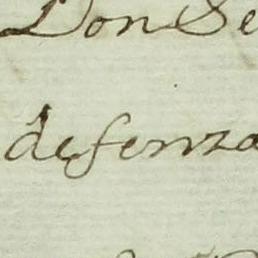 Don Se
defenza